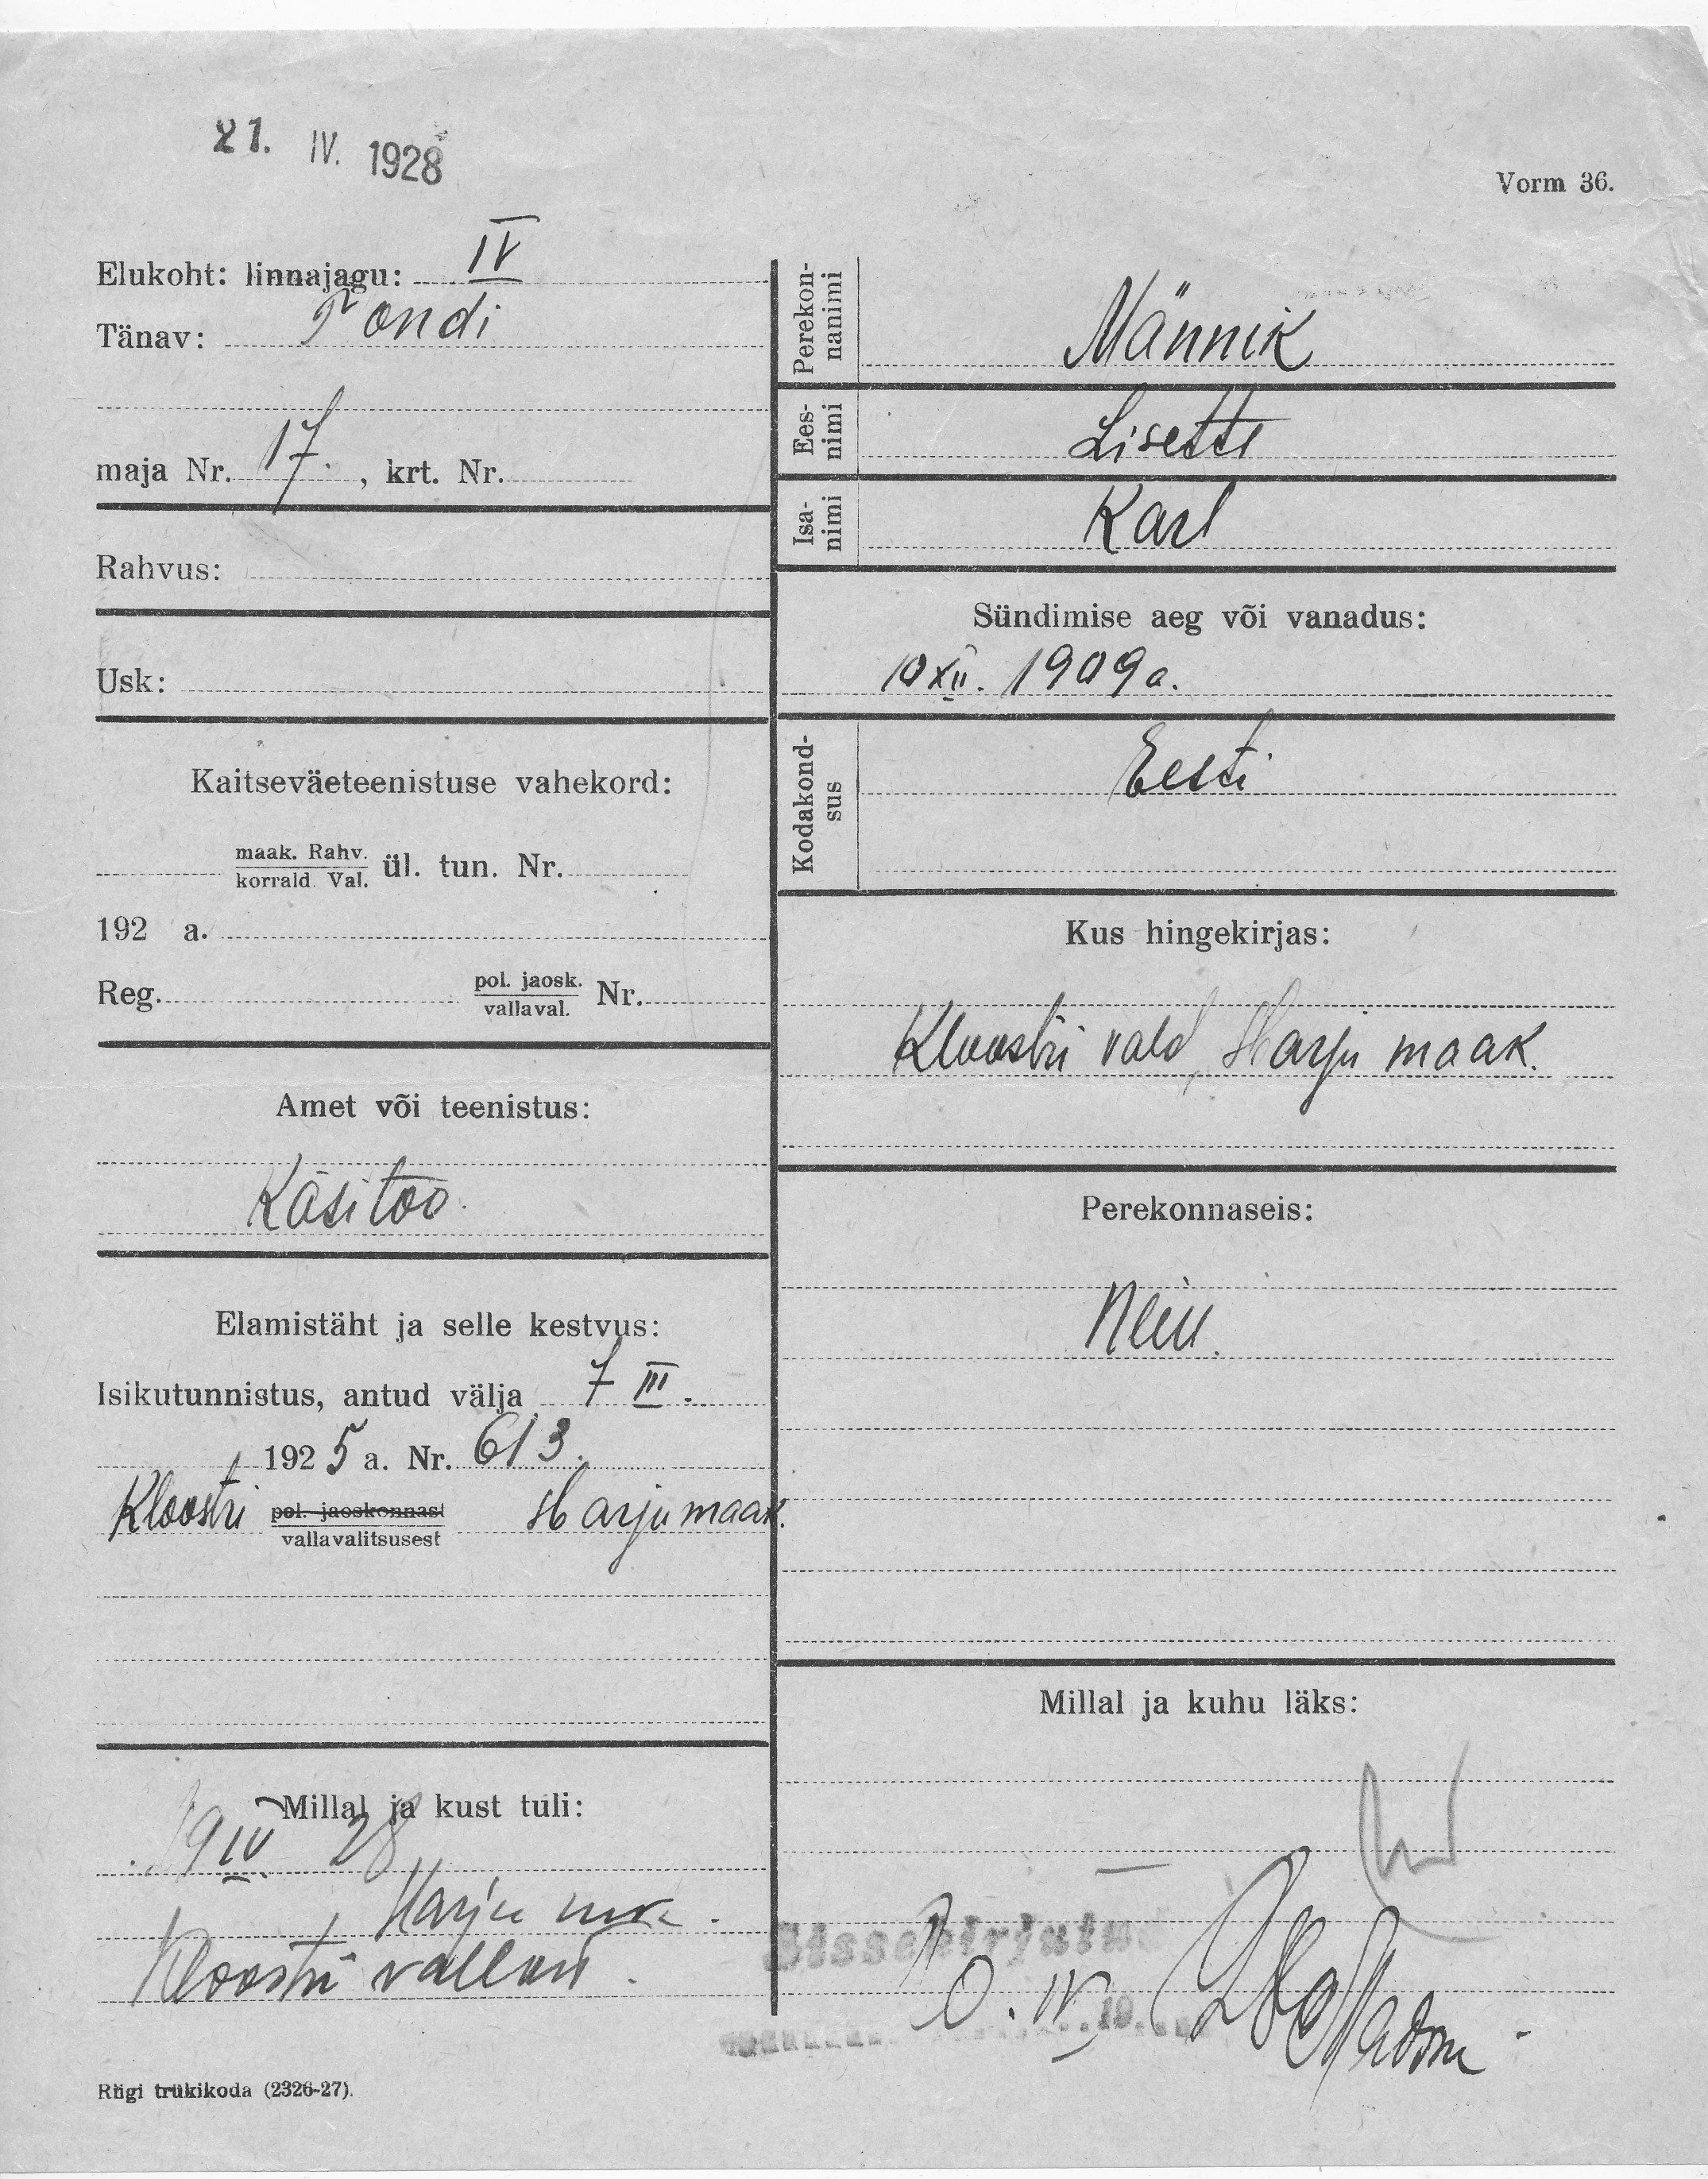 21. IV. 1928
Vorm 36.
Elukoht: linnajagu: IV
Tänav: Tondi
maja Nr. 17. , krt. Nr.
Rahvus:
Usk:
Kaitseväeteenistuse vahekord:
maak. Rahv.
korrald. Val.
ül. tun. Nr.
192 a.
Reg. pol. jaosk. Nr.
vallaval.
Amet või teenistus:
Käsitöö.
Elamistäht ja selle kestvus:
Isikutunnistus, antud välja 7 III.
1925 a. Nr. 613.
Kloostri pol. jaoskonnast Harju maak.
vallavalitsusest
Millal ja kust tuli:
19 IV 28
Harju mk.
Kloostri vallast.
Riigi trükikoda (2326-27).
Perekon-
nanimi
Männik
Ees-
nimi
Lisette
Isa-
nimi
Karl
Sündimise aeg või vanadus:
10 XII. 1909 a.
Kodakond-
sus
Eesti
Kus hingekirjas:
Kloostri vald, Harju maak.
Perekonnaseis:
Neiu.
Millal ja kuhu läks:
Sissekirjutud
IV 19